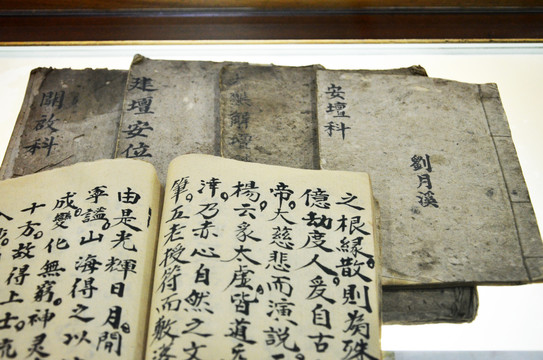 開啟科
建壇安位
解壇
安壇科
劉月溪
之根緣。散則為殊
億劫度人。爰自古
帝。大慈悲而演說
楊云。象太虛。皆道
乃赤心自然之文
筆。五老授符而敷落
由是光輝日月。開
寧謐。山海得之以
成。變化無窮。神灵
十方。故得上士